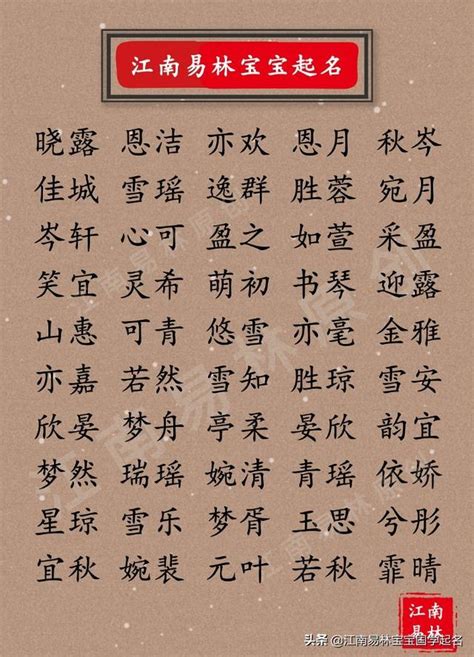 江南易林宝宝起名
晓露 恩洁 亦欢 恩月 秋岑
佳城 雪瑶 逸群 胜蓉 宛月
岑轩 心可 盈之 如萱 采盈
笑宜 灵希 萌初 书琴 迎露
山惠 可青 悠雪 亦毫 金雅
亦嘉 若然 雪知 胜琼 雪安
欣晏 梦舟 亭柔 晏欣 韵宜
梦然 瑞瑶 婉清 青瑶 依娇
星琼 雪乐 梦胥 玉思 兮彤
宜秋 婉裴 元叶 若秋 霏晴
江南易林原创
江南易林原创
江南
易林
头条 @江南易林宝宝国学起名